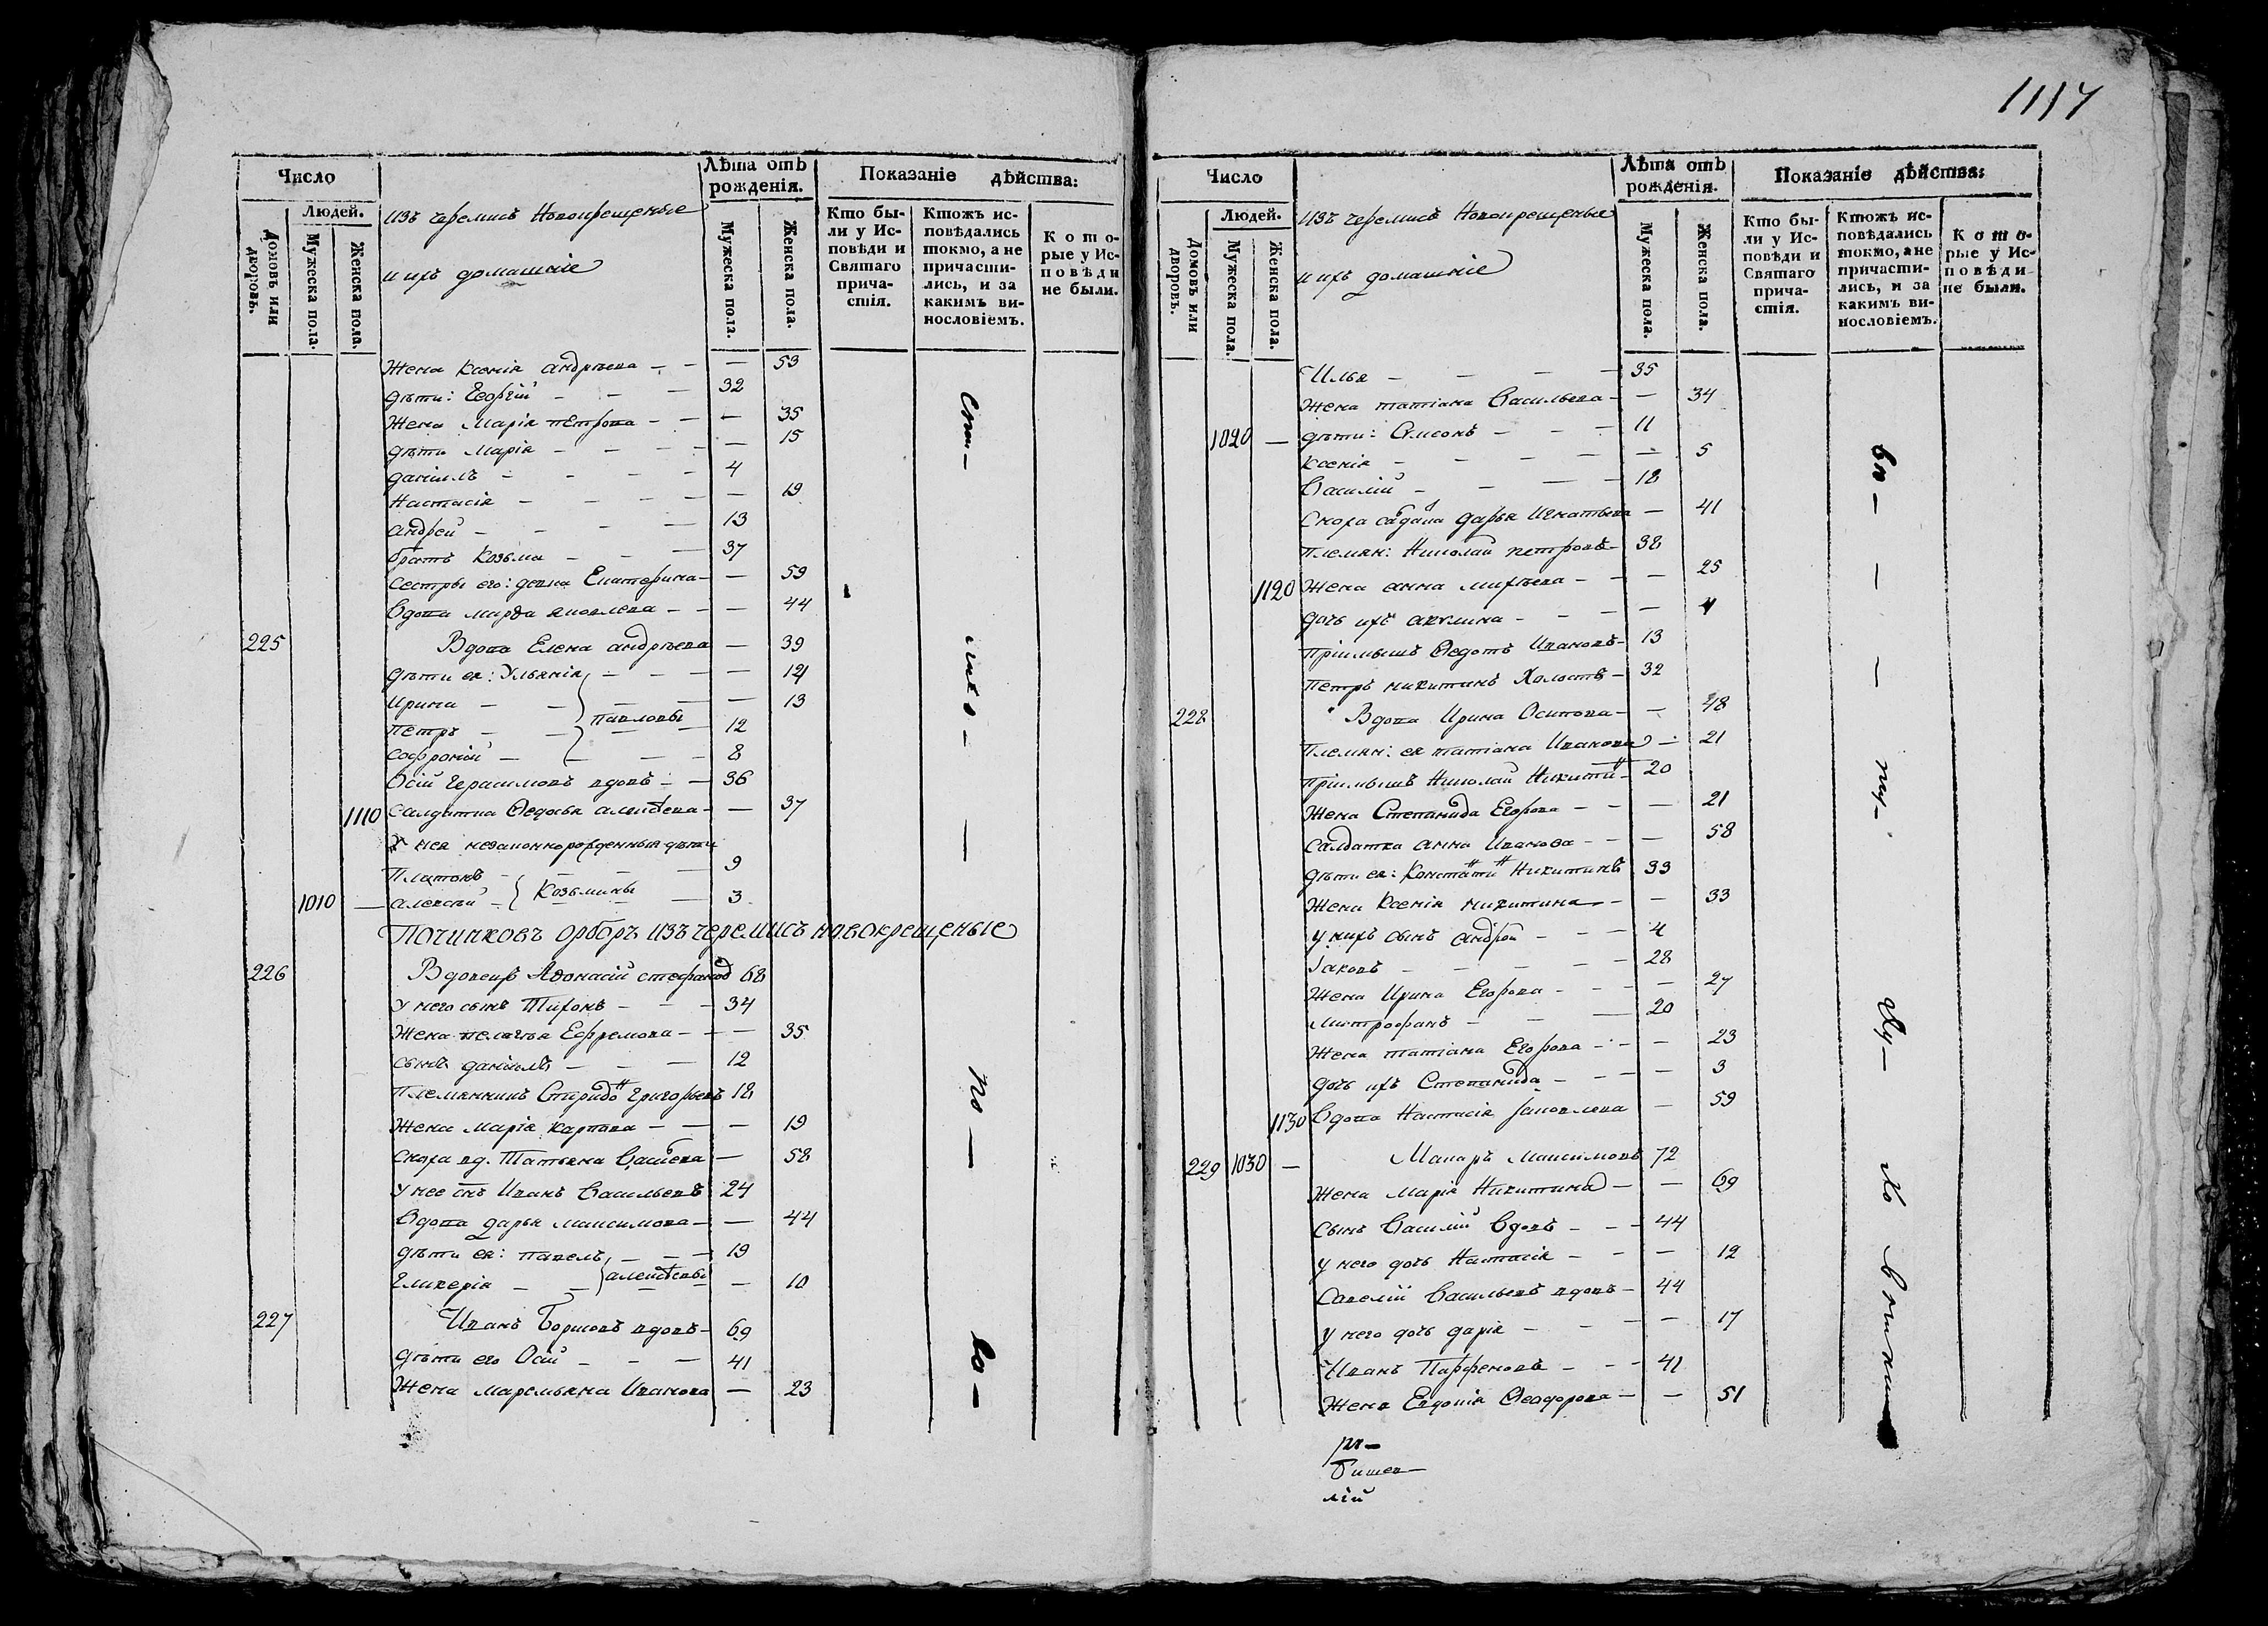 1117
Число
Людей.
Домовъ или дворовъ.
Мужеска пола.
Женска пола.
изъ черемисъ Новокрещеные
и ихъ домашніе
Лѣта отъ рожденія.
Мужеска пола.
Женска пола.
Показаніе дѣйства:
Кто были у Исповѣди и Святаго причастія.
Ктожъ исповѣдались токмо, а не причастились, и за какимъ винословіемъ.
Которые у Исповѣди не были.
Жена Ксенія андрѣева — — 53
дѣти: Георгій — — 32
Жена Марія петрова — — 35
дѣти Марія — — 15
даніилъ — — 4
Настасія — — 19
андрей — — 13
братъ Козьма — — 37
Сестры его: девка Екатерина — — 59
Вдова марѳа яковлева — — 44
225 Вдова Елена андрѣева — 39
дѣти ея: Ульянія — — 14
Ирина — — 13
петръ — павловы — 12
Софроній — — 8
Осій Герасимовъ вдовъ — — 36
1110 Салдатка Ѳедосья алексѣева — — 37
У нея незаконнорожденныя дѣти
Платонъ — — 9
1010 — алексѣй — Козьмины — 3
Починковъ орборъ изъ черемисъ новокрещеные
226 Вдовецъ Аѳонасій стефановъ 68
У него сынъ Тихонъ — — 34
Жена пелагѣа Ефремова — — 35
сынъ даніилъ — — 12
Племянникъ Спиридо Григорьевъ 18
Жена Марія карпова — — 19
Сноха вд. Татьяна Васильева — 58
У нее снъ Иванъ Васильевъ 24
Вдова дарья максимова — — 44
дѣти ея: павелъ — — 19
Гликерія — алексѣевы — 10
227 Иванъ Борисовъ вдовъ — 69
дѣти его Осій — — 41
Жена маремьяна Иванова — 23
по —
во —
Число
Людей.
Домовъ или дворовъ.
Мужеска пола.
Женска пола.
изъ черемисъ Новокрещеные
и ихъ домашніе
Лѣта отъ рожденія.
Мужеска пола.
Женска пола.
Показаніе дѣйства:
Кто были у Исповѣди и Святаго причастія.
Ктожъ исповѣдались токмо, а не причастились, и за какимъ винословіемъ.
Которые у Исповѣди не были.
Илья — — 35
Жена татіана Васильева — — 34
1020 — дѣти: Симеонъ — — 11
Ксенія — — 5
Василій — — 18
Сноха вдова дарья Игнатьева — 41
племян: Николай петровъ — 38
1120 Жена анна михѣева — — 25
дочь ихъ акулина — — 4
пріимышъ Ѳедотъ Ивановъ — 13
петръ никитинъ Холостъ — 32
228 Вдова Ирина Осипова — — 48
Племян: ея татіана Иванова — 21
пріимышъ Николай Никити — 20
Жена Степанида Егорова — — 21
Салдатка анна Иванова — — 58
дѣти ея: Констати Никитинъ 33
Жена Ксенія никитина — — 33
у нихъ сынъ андрей — — 4
Іаковъ — — 28
Жена Ирина Егорова — — 27
митрофанъ — — 20
Жена татіана Егорова — — 23
дочь ихъ Степанида — — 3
1130 Вдова Настасія Іаковлева — 59
229 1030 — Макаръ Максимовъ 72
Жена Марія Никитина — — 69
сынъ Василій Вдовъ — — 44
у него дочь Настасія — — 12
Савелій Васильевъ вдовъ — 44
у него дочь дарія — — 17
Иванъ Парфеновъ — — 41
Жена Евдокія Ѳеодорова — — 51